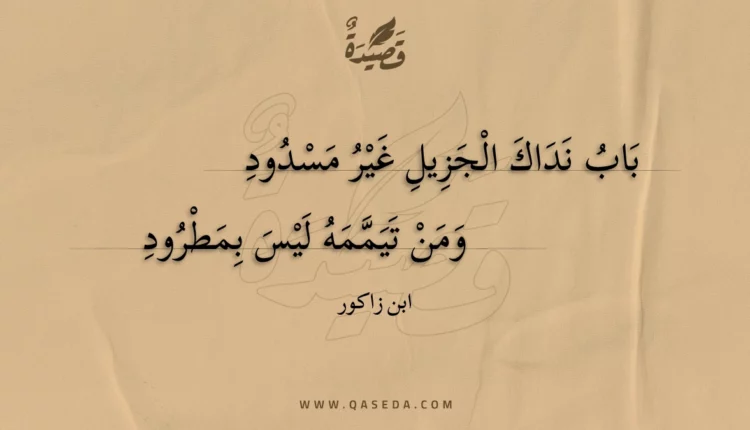 قَصِيْدَةٌ
بَابُ نَدَاكَ الْجَزِيلِ غَيْرُ مَسْدُودِ
وَمَنْ تَيَمَّمَهُ لَيْسَ بِمَطْرُودِ
ابن زاكور
WWW.QASEDA.COM